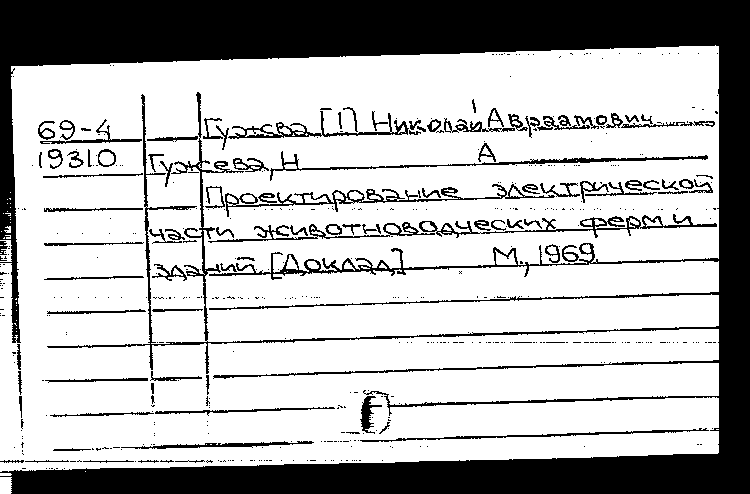 69-4 Гужева [1] Николай Авраамович
19310 Гужева, Н А
Проектирование электрической
части животноводческих ферм и
зданий [Доклад] М., 1969